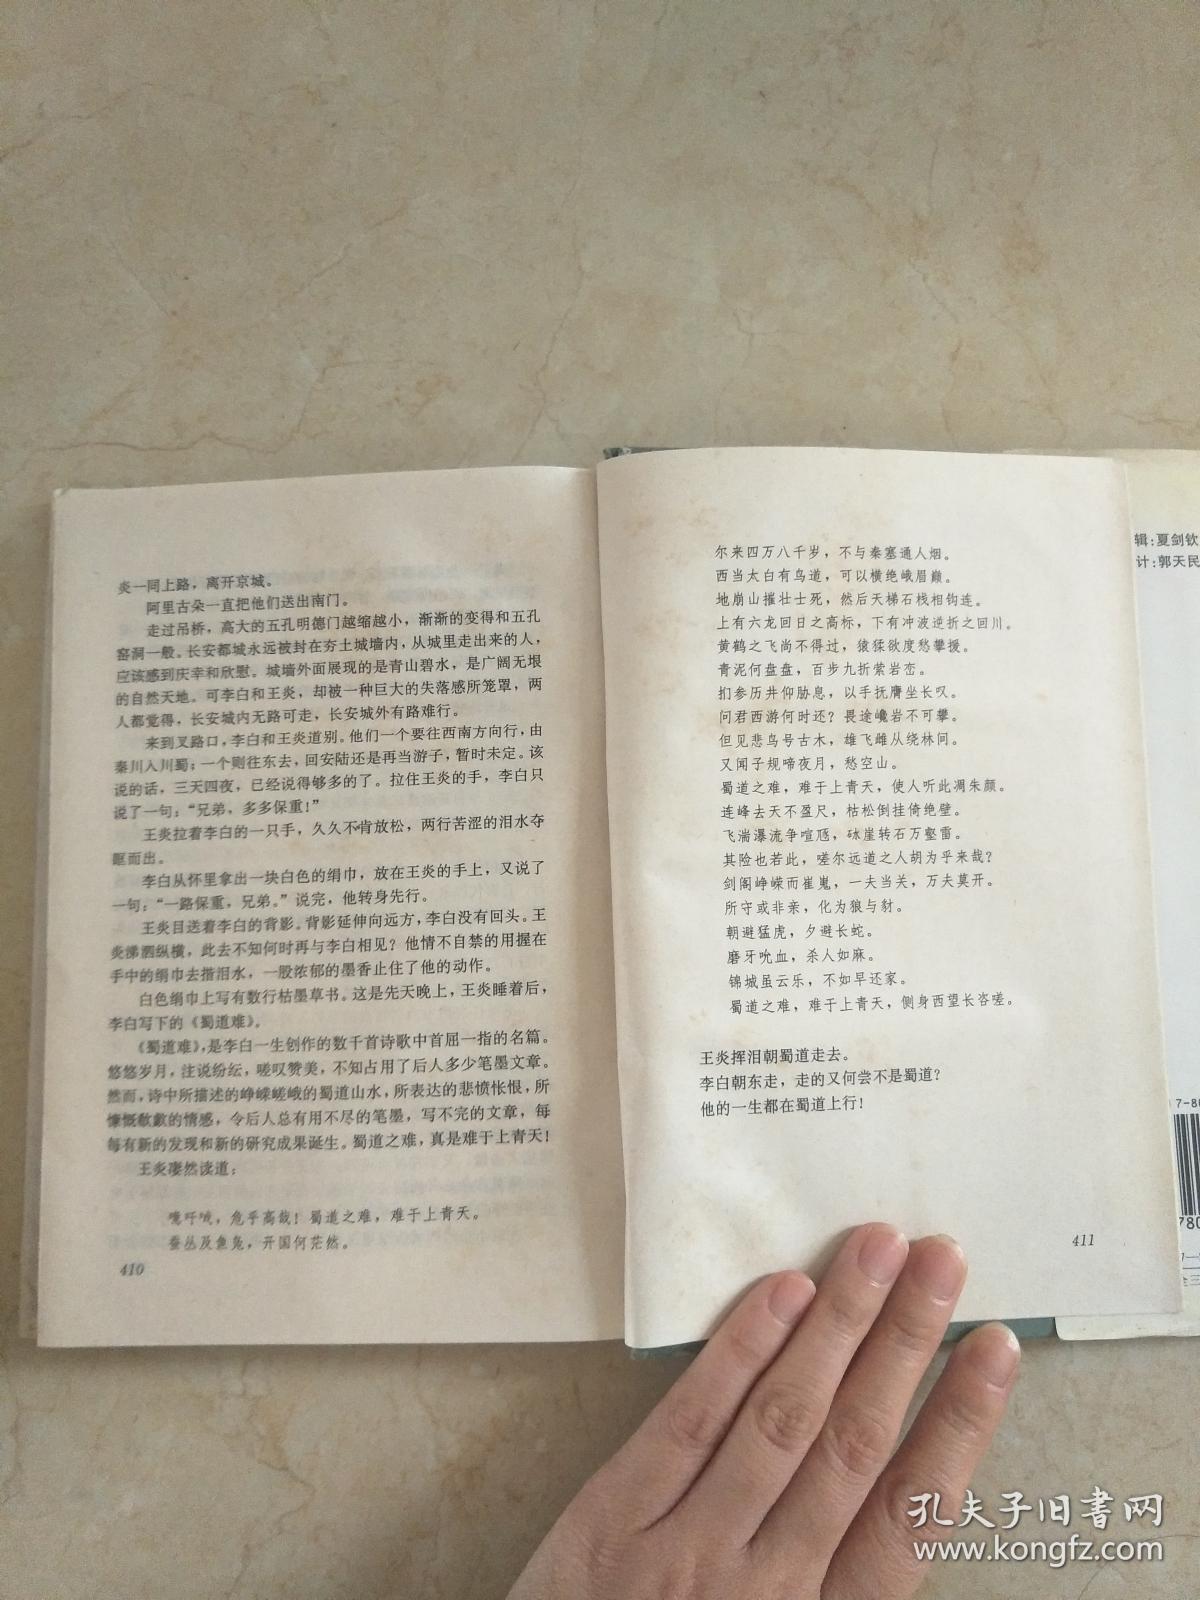 炎一同上路，离开京城。
阿里古朵一直把他们送出南门。
走过吊桥，高大的五孔明德门越缩越小，渐渐的变得和五孔
窑洞一般。长安都城永远被封在夯土城墙内，从城里走出来的人，
应该感到庆幸和欣慰。城墙外面展现的是青山碧水，是广阔无垠
的自然天地。可李白和王炎，却被一种巨大的失落感所笼罩，两
人都觉得，长安城内无路可走，长安城外有路难行。
来到叉路口，李白和王炎道别。他们一个要往西南方向行，由
秦川入川蜀；一个则往东去，回安陆还是再当游子，暂时未定。该
说的话，三天四夜，已经说得够多的了。拉住王炎的手，李白只
说了一句：“兄弟，多多保重！”
王炎拉着李白的一只手，久久不肯放松，两行苦涩的泪水夺
眶而出。
李白从怀里拿出一块白色的绢巾，放在王炎的手上，又说了
一句：“一路保重，兄弟。”说完，他转身先行。
王炎目送着李白的背影。背影延伸向远方，李白没有回头。王
炎涕泗纵横，此去不知何时再与李白相见？他情不自禁的用握在
手中的绢巾去揩泪水，一股浓郁的墨香止住了他的动作。
白色绢巾上写有数行枯墨草书。这是先天晚上，王炎睡着后，
李白写下的《蜀道难》。
《蜀道难》，是李白一生创作的数千首诗歌中首屈一指的名篇。
悠悠岁月，注说纷纭，嗟叹赞美，不知占用了后人多少笔墨文章。
然而，诗中所描述的峥嵘嵯峨的蜀道山水，所表达的悲愤怅恨，所
慷慨欷歔的情感，令后人总有用不尽的笔墨，写不完的文章，每
每有新的发现和新的研究成果诞生。蜀道之难，真是难于上青天！
王炎凄然读道：
噫吁嚱，危乎高哉！蜀道之难，难于上青天。
蚕丛及鱼凫，开国何茫然。
410
尔来四万八千岁，不与秦塞通人烟。
西当太白有鸟道，可以横绝峨眉巅。
地崩山摧壮士死，然后天梯石栈相钩连。
上有六龙回日之高标，下有冲波逆折之回川。
黄鹤之飞尚不得过，猿猱欲度愁攀援。
青泥何盘盘，百步九折萦岩峦。
扪参历井仰胁息，以手抚膺坐长叹。
问君西游何时还？畏途巉岩不可攀。
但见悲鸟号古木，雄飞雌从绕林间。
又闻子规啼夜月，愁空山。
蜀道之难，难于上青天，使人听此凋朱颜。
连峰去天不盈尺，枯松倒挂倚绝壁。
飞湍瀑流争喧豗，砯崖转石万壑雷。
其险也若此，嗟尔远道之人胡为乎来哉？
剑阁峥嵘而崔嵬，一夫当关，万夫莫开。
所守或非亲，化为狼与豺。
朝避猛虎，夕避长蛇。
磨牙吮血，杀人如麻。
锦城虽云乐，不如早还家。
蜀道之难，难于上青天，侧身西望长咨嗟。
王炎挥泪朝蜀道走去。
李白朝东走，走的又何尝不是蜀道？
他的一生都在蜀道上行！
411
辑：夏剑钦
计：郭天民
孔夫子旧书网
www.kongfz.com